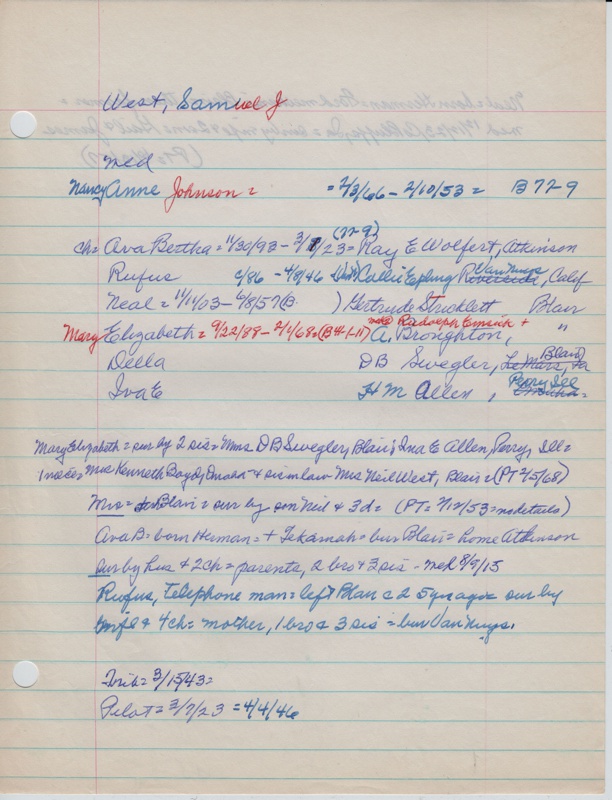 West, Samuel J
med
Nancy Anne Johnson = = 2/3/66 - 2/10/53 = B 77-9
(77-9)
ch = Ava Bertha = 11/30/93 - 3/1/23 = Ray E Wolfert, Atkinson
Rufus c/86 - 4/8/46 Collie Epling Riverside, Van Nuys, Calif
Neal = 11/1/03 - 6/8/57 (B. ) Gertrude Stricklett Blair
med② Rudolph Emrich +
Mary Elizabeth = 9/22/88 - 2/1/68 = (B 41-1-11) A. Broughton, "
Della D B Swegler, LeMars, Ia Blair
Iva E H M Allen, Omaha = Perry Ill
Mary Elizabeth = sur by 2 sis = Mmes D B Swegler, Blair; Ina E Allen, Perry, Ill =
1 niece = Mrs Kenneth Boyd, Omaha + sis in law Mrs Neil West, Blair = (PT 2/5/68)
Mrs = Blair = sur by son Neil & 3 d = (PT = 2/12/53 = no details)
Ava B = born Herman = + Tekamah = bur Blair = home Atkinson
sur by hus + 2 ch = parents, 2 bros + 3 sis - med 8/9/15
Rufus, telephone man = left Blair c 25 yrs ago = sur by
wife & 4 ch = mother, 1 bro & 3 sis = bur Van Nuys.
Trib = 3/15/43 =
Pilot = 3/7/23 = 4/4/46